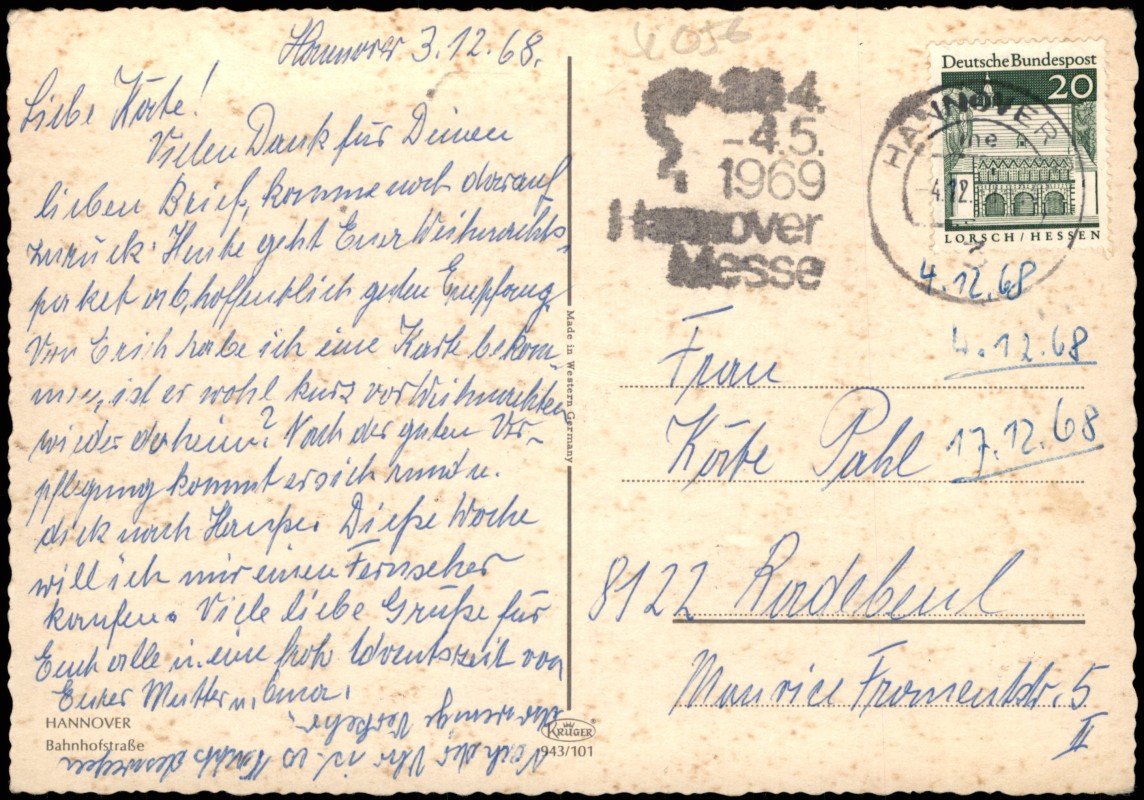 Hannover 3.12.68.
Liebe Käte!
Vielen Dank für Deinen
lieben Brief, komme noch darauf
zurück. Heute geht Euer Weihnachts-
paket ab, hoffentlich guten Empfang.
Von Erich habe ich eine Karte bekom-
men, ist er wohl kurz vor Weihnachten
wieder daheim? Nach der guten Ver-
pflegung kommt er sich rund u.
dick nach Hause. Dieße Woche
will ich mir einen Fernseher
kaufen. Viele liebe Grüße für
Euch alle u. eine froh Adventszeit von
Eurer Mutter u. Oma.
Nach der Uhr is. so deswegen
wenig Verkehr
HANNOVER
Bahnhofstraße
Made in Western Germany
KRÜGER
943/101
4056
4.
-4.5.
1969
Hannover
Messe
Deutsche Bundespost
20
LORSCH/HESSEN
HANNOVER
-4.12.
4.12.68
4.12.68
17.12.68
Frau
Käte Pahl
8122 Radebeul
Maurice Fromentstr. 5
II